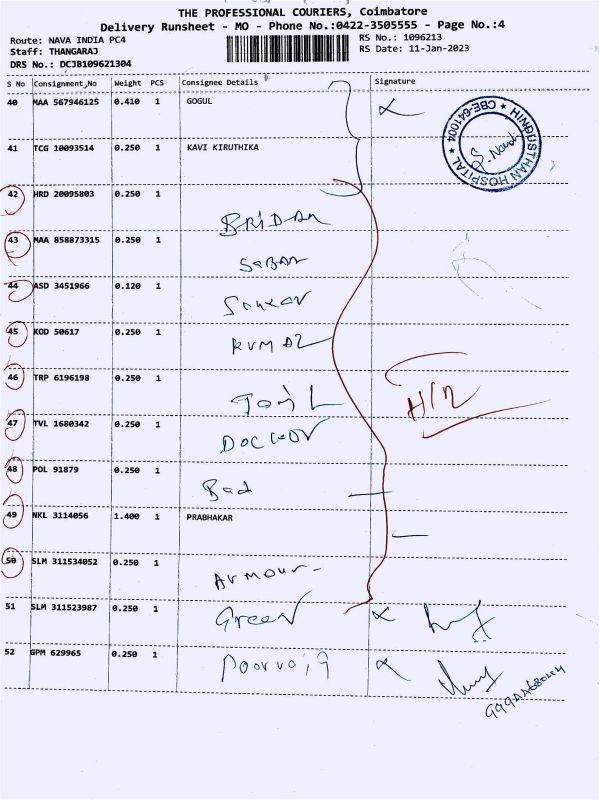 THE PROFESSIONAL COURIERS, Coimbatore
Delivery Runsheet - MO - Phone No.:0422-3505555 - Page No.:4
Route: NAVA INDIA PC4 RS No.: 1096213
Staff: THANGARAJ RS Date: 11-Jan-2023
DRS No.: DCJB109621304
S No Consignment No Weight PCS Consignee Details Signature
40 MAA 567946125 0.410 1 GOGUL
CBE-641004
HOSPITAL
41 TCG 10093514 0.250 1 KAVI KIRUTHIKA
42 HRD 20095803 0.250 1
43 MAA 858873315 0.250 1
44 ASD 3451966 0.120 1
45 KOD 50617 0.250 1 KUMAR
46 TRP 6196198 0.250 1
47 TVL 1680342 0.250 1 DOCTOR
48 POL 91879 0.250 1 Bad
49 NKL 3114056 1.400 1 PRABHAKAR
50 SLM 311534052 0.250 1 Armour
51 SLM 311523987 0.250 1 Green
52 GPM 629965 0.250 1